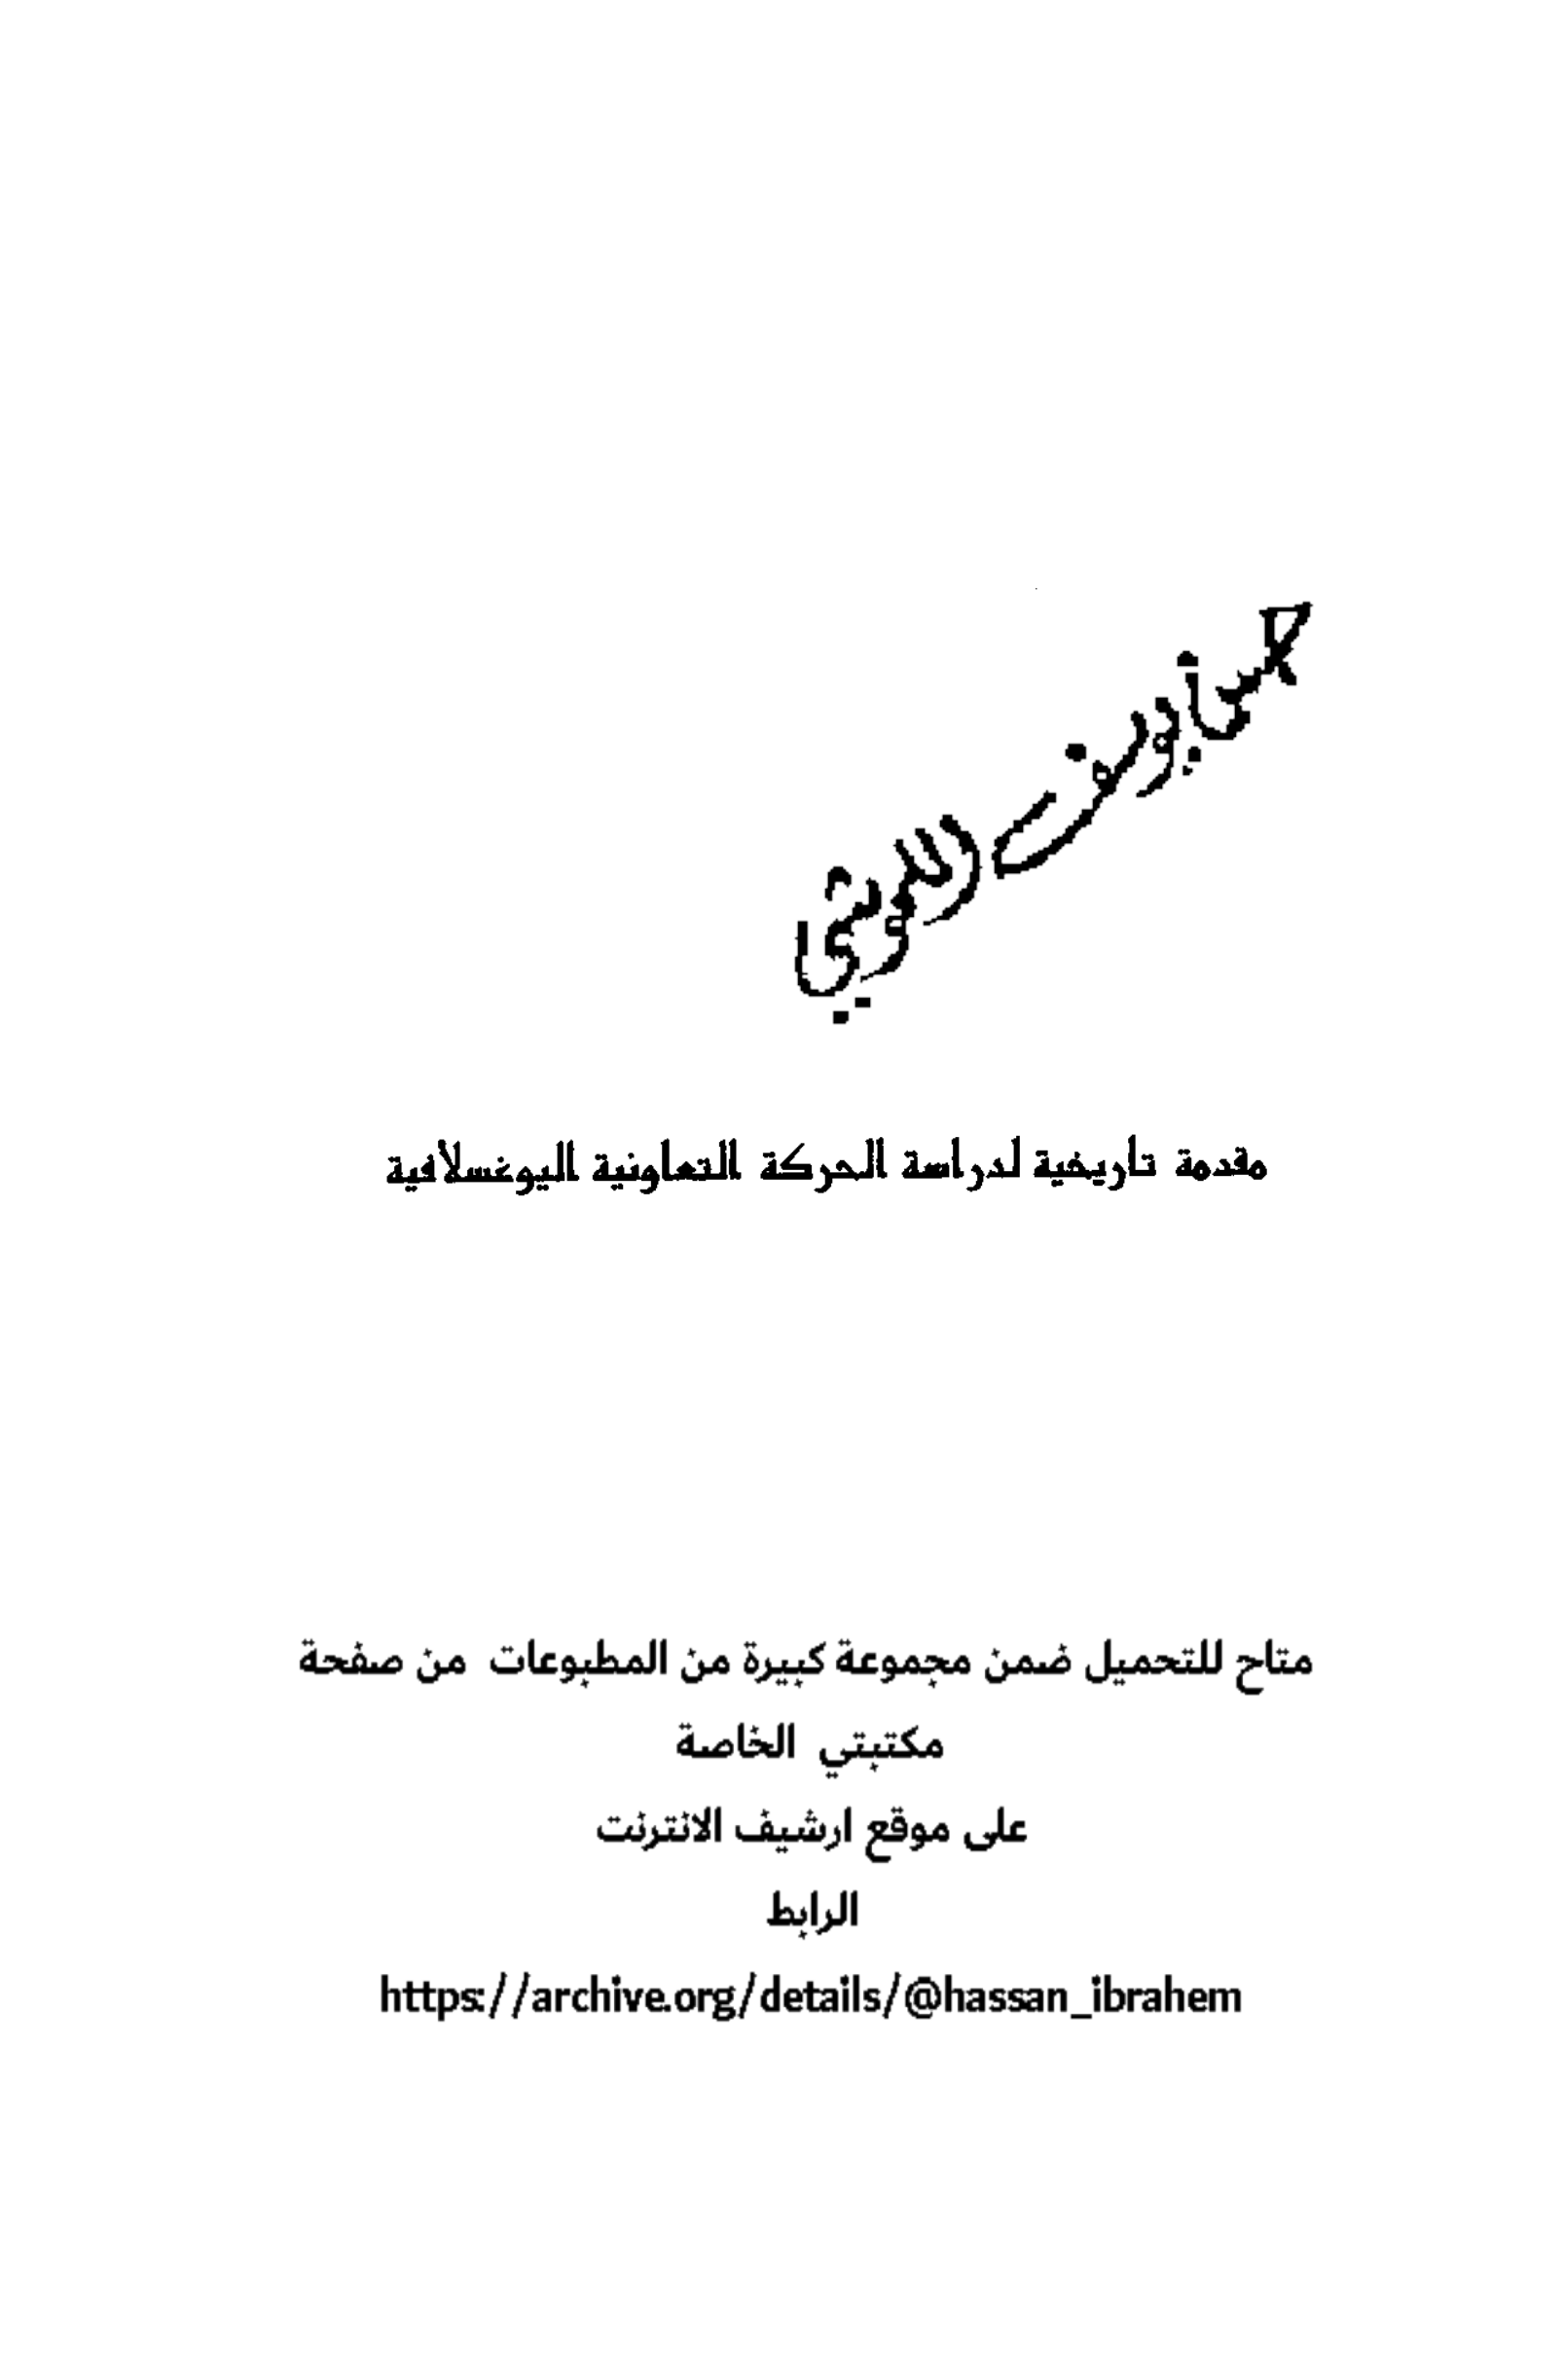 مقدمة تاريخية لدراسة الحركة التعاونية اليوغسلافية
متاح للتحميل ضمن مجموعة كبيرة من المطبوعات من صفحة
مكتبتي الخاصة
على موقع ارشيف الانترنت
الرابط
https://archive.org/details/@hassan_ibrahem